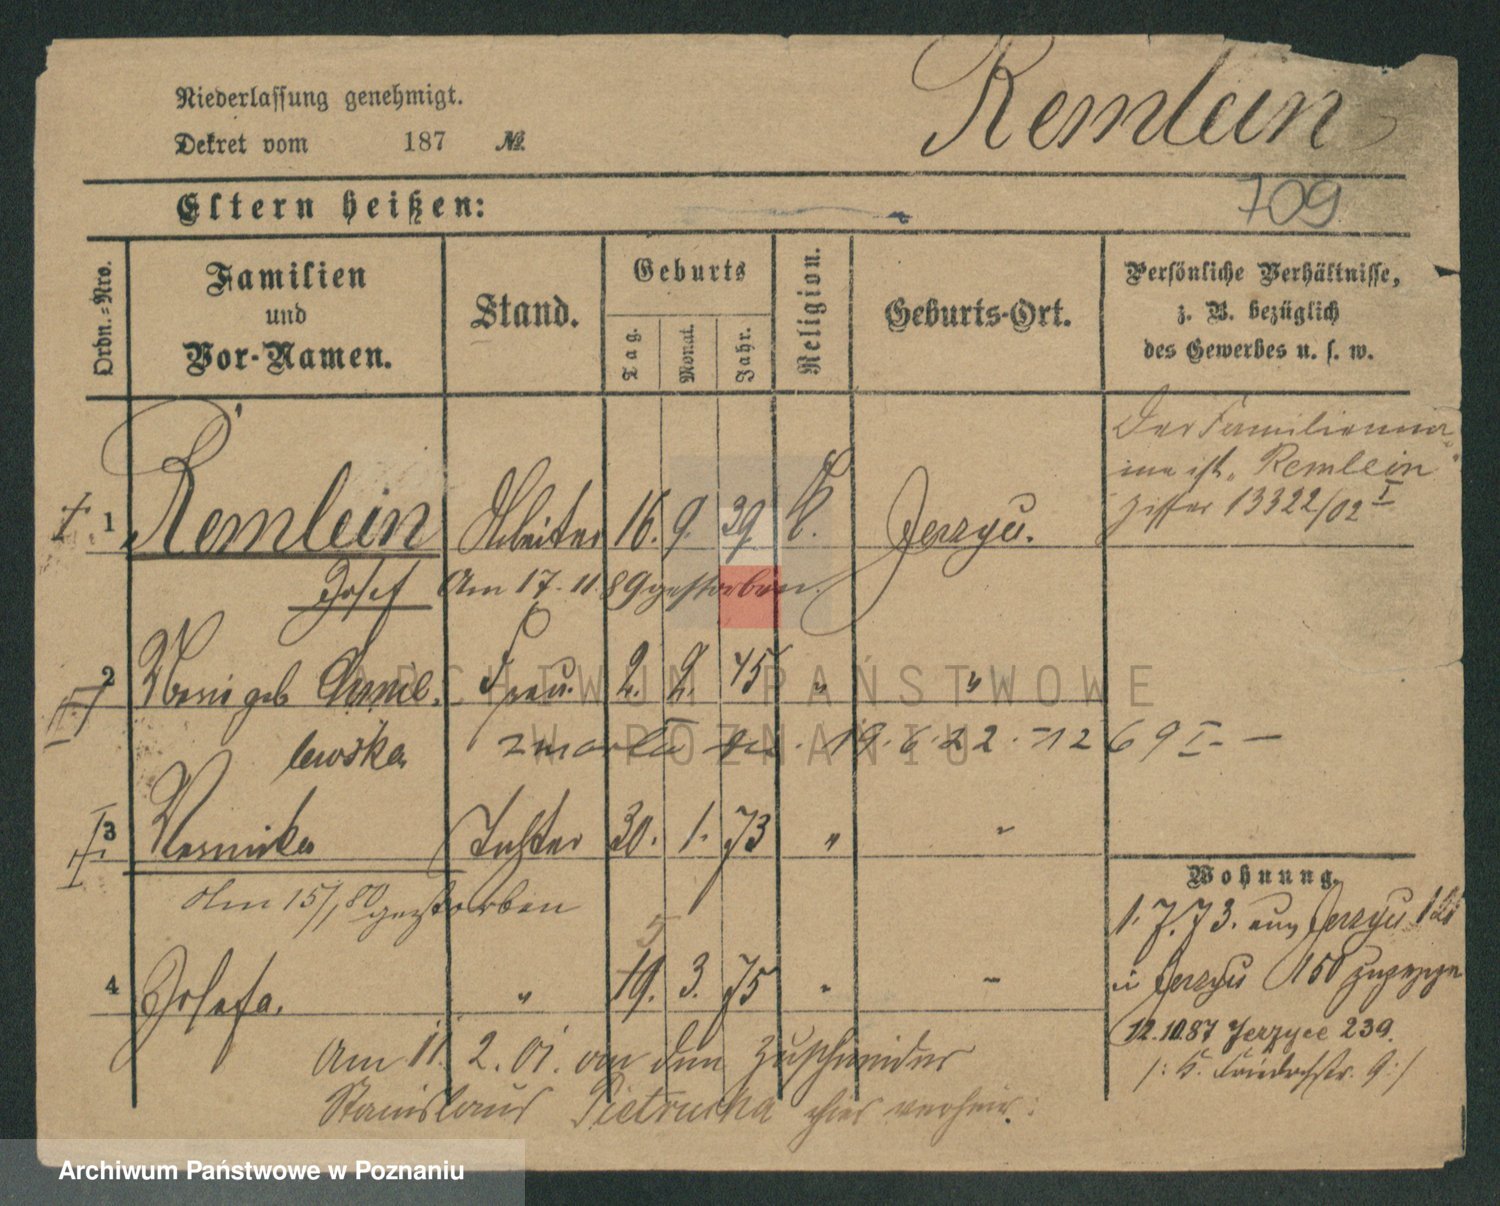 Niederlassung genehmigt.
Dekret vom 187 №
Remlein
Eltern heißen:
709
Ordn.-Nro.
Familien
und
Vor-Namen.
Stand.
Geburts
Tag.
Monat.
Jahr.
Religion.
Geburts-Ort.
Persönliche Verhältnisse,
z. B. bezüglich
des Gewerbes u. s. w.
Der Familienna-
me ist "Remlein"
Ziffer 13322/02 I
1 Remlein Arbeiter 16. 9. 39. K. Jerzyce.
Josef Am 17. 11. 89 gestorben.
2 geb. Frau. 2. 2. 45 " "
lewska zmarła 19.6.22. -1269 I- -
3 Tochter 30. 1. 73 " "
Am 15/1 80 gestorben
5
4 Josefa. " 19. 3. 75 " "
Am 11. 2. 01. an den Zuschneider
Stanislaus Pietruska hier verheir.
Wohnung.
1. 7. 73. aus Jerzyce
Jerzyce 150 zugezogen
12.10.87 Jerzyce 239.
9:/
ARCHIWUM PAŃSTWOWE
W POZNANIU
Archiwum Państwowe w Poznaniu